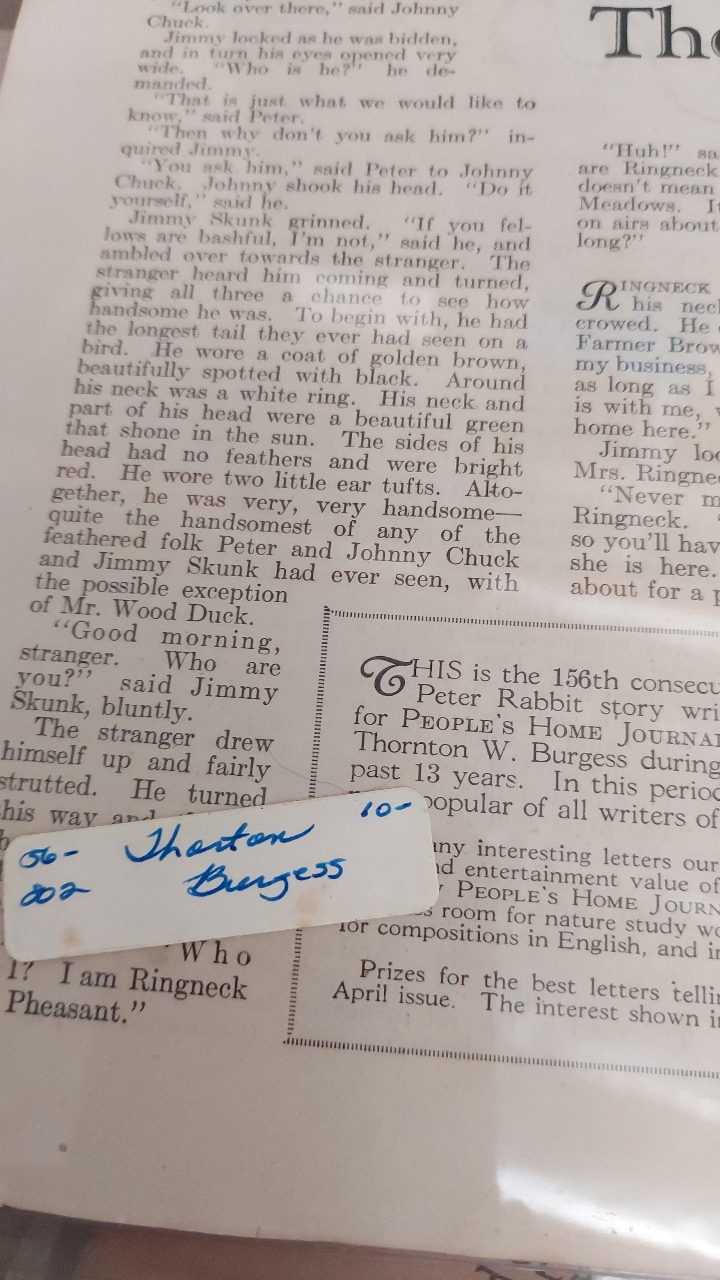 "Look over there," said Johnny
Chuck.
Jimmy looked as he was bidden,
and in turn his eyes opened very
wide. "Who is he?" he de-
manded.
"That is just what we would like to
know," said Peter.
"Then why don't you ask him?" in-
quired Jimmy.
"You ask him," said Peter to Johnny
Chuck. Johnny shook his head. "Do it
yourself," said he.
Jimmy Skunk grinned. "If you fel-
lows are bashful, I'm not," said he, and
ambled over towards the stranger. The
stranger heard him coming and turned,
giving all three a chance to see how
handsome he was. To begin with, he had
the longest tail they ever had seen on a
bird. He wore a coat of golden brown,
beautifully spotted with black. Around
his neck was a white ring. His neck and
part of his head were a beautiful green
that shone in the sun. The sides of his
head had no feathers and were bright
red. He wore two little ear tufts. Alto-
gether, he was very, very handsome—
quite the handsomest of any of the
feathered folk Peter and Johnny Chuck
and Jimmy Skunk had ever seen, with
the possible exception
of Mr. Wood Duck.
"Good morning,
stranger. Who are
you?" said Jimmy
Skunk, bluntly.
The stranger drew
himself up and fairly
strutted. He turned
his way and
"Who
I? I am Ringneck
Pheasant."
56- Thorton 10-
202 Burgess
The
"Huh!" sa
are Ringneck
doesn't mean
Meadows. I
on airs about
long?"
RINGNECK
his nec
crowed. He
Farmer Brow
my business,
as long as I
is with me,
home here."
Jimmy loo
Mrs. Ringne
"Never m
Ringneck.
so you'll hav
she is here.
about for a p
THIS is the 156th consecu
Peter Rabbit story wri
for PEOPLE'S HOME JOURNA
Thornton W. Burgess during
past 13 years. In this period
popular of all writers of
any interesting letters our
d entertainment value of
PEOPLE'S HOME JOURN
room for nature study wo
for compositions in English, and in
Prizes for the best letters tellin
April issue. The interest shown i